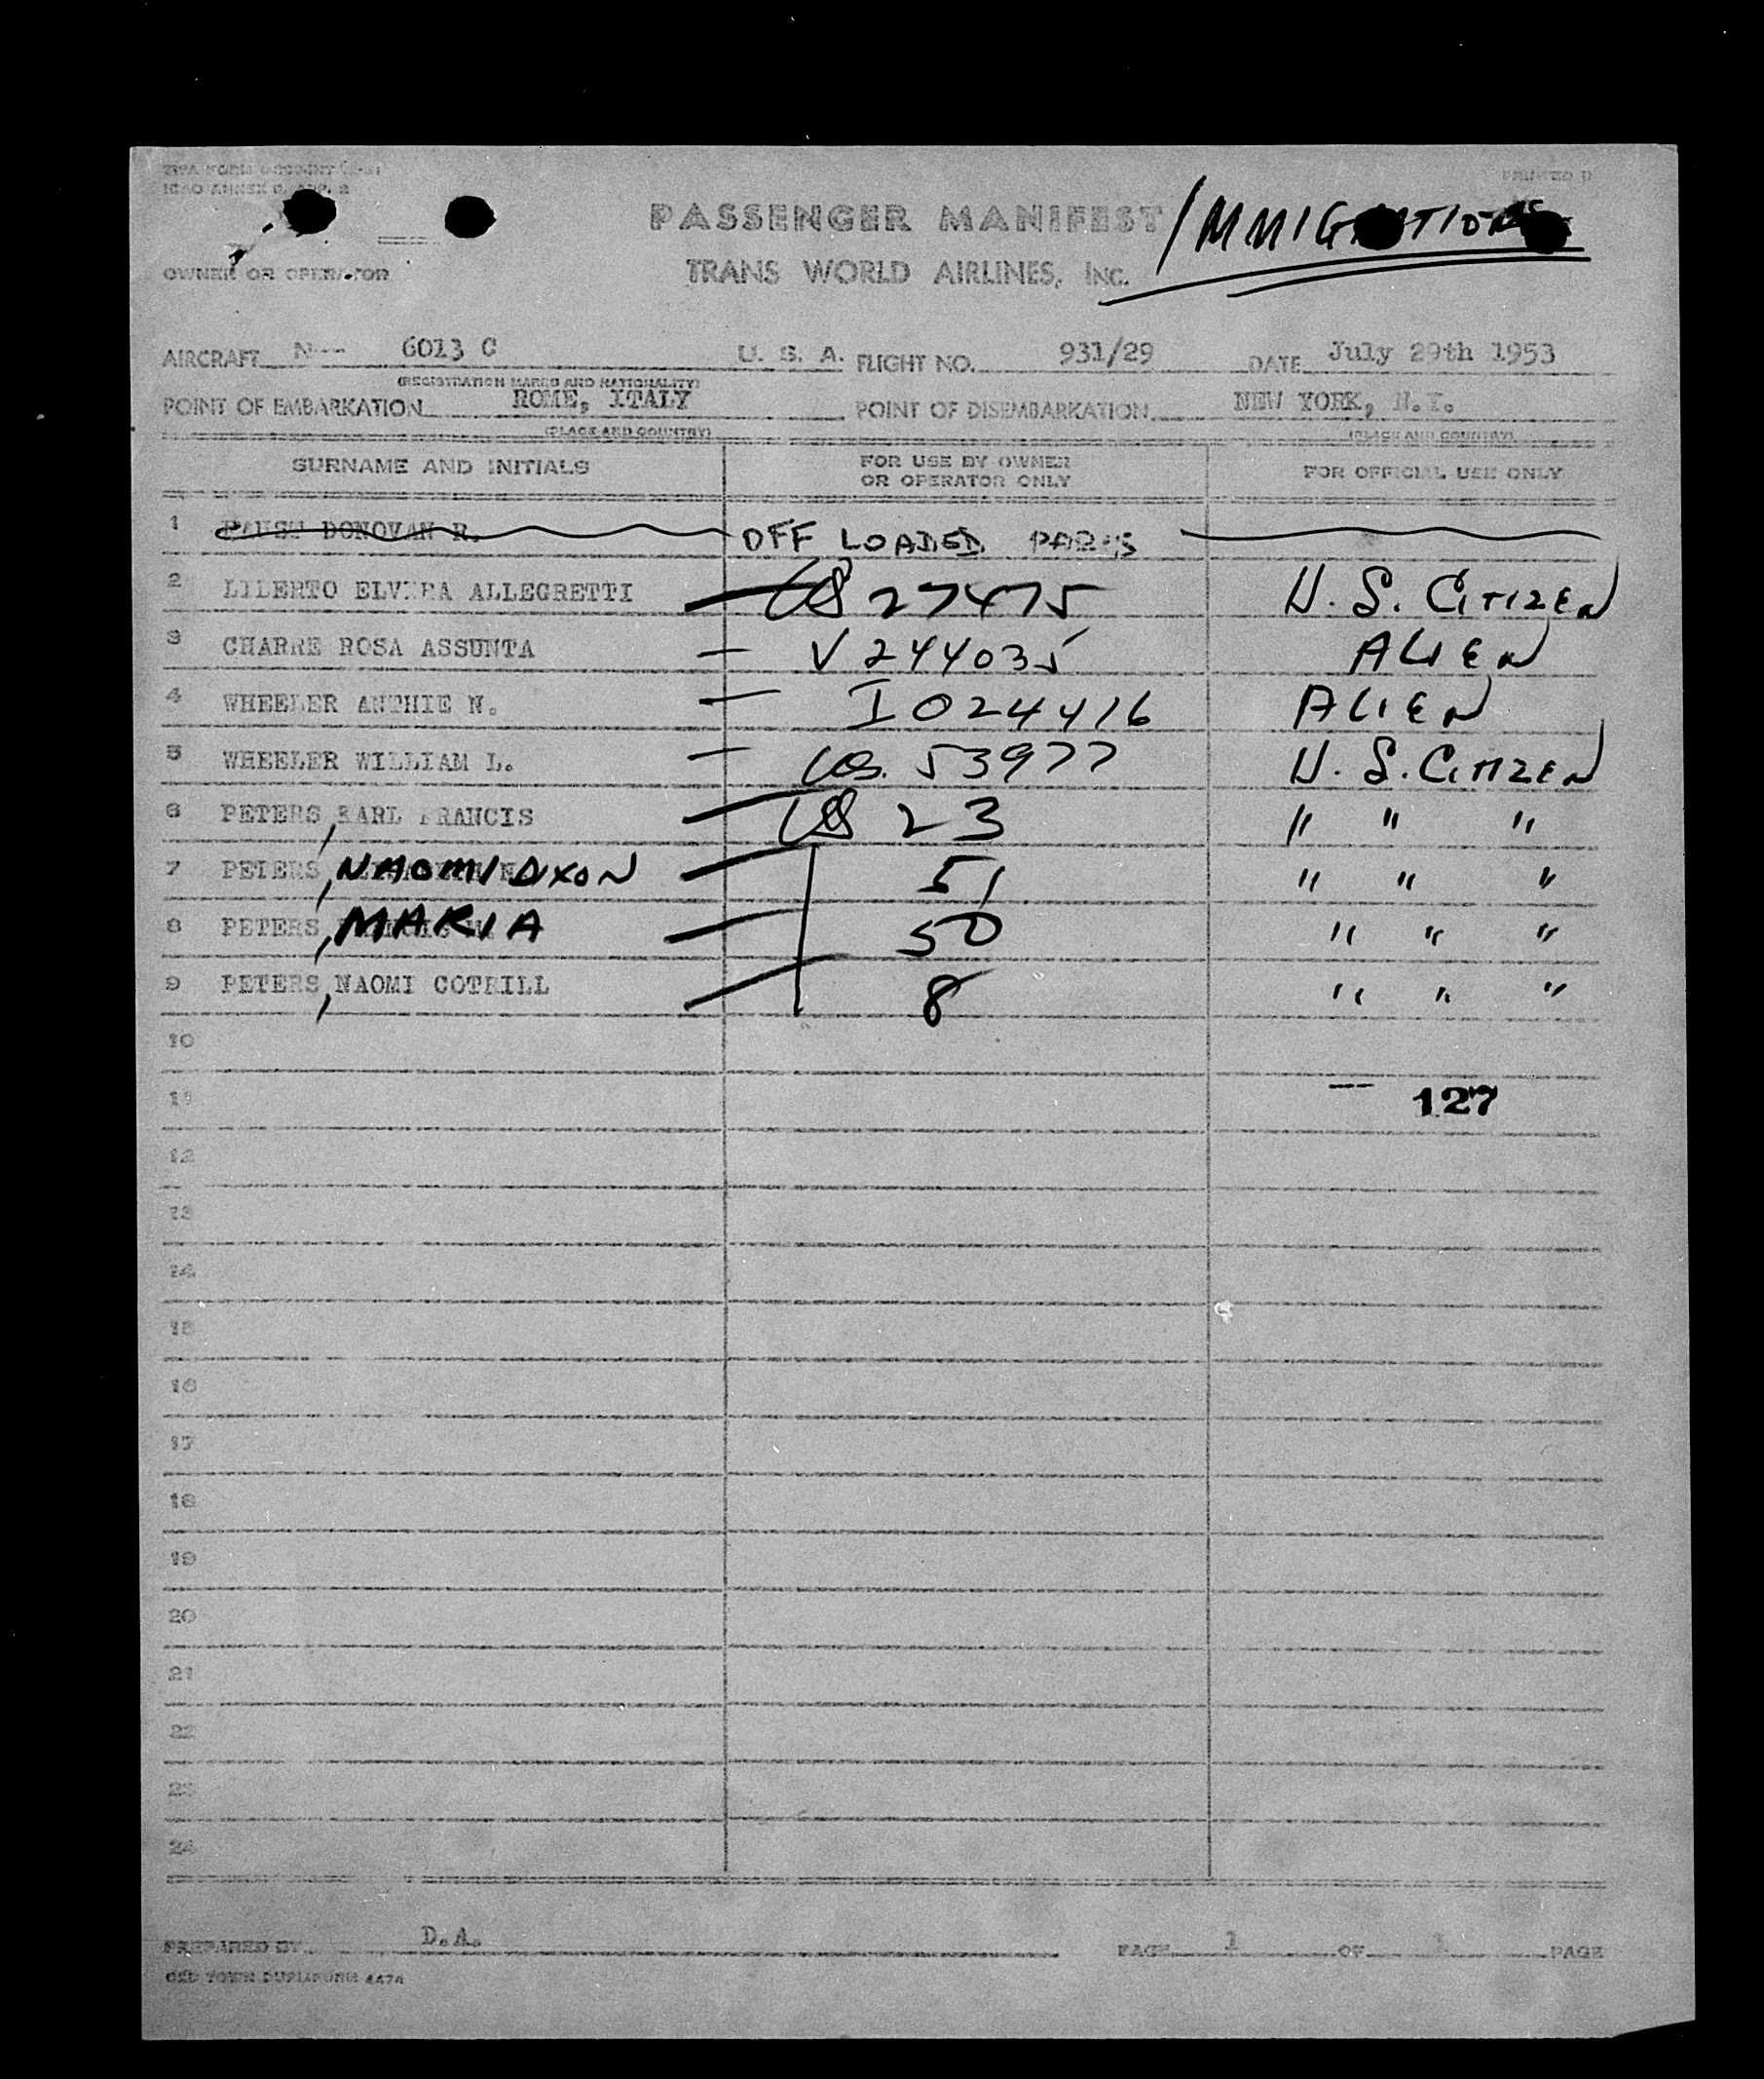 PASSENGER MANIFEST
TRANS WORLD AIRLINES, INC.
OWNER OR OPERATOR
AIRCRAFT N 6013 C U. S. A. FLIGHT NO. 931/29 DATE July 29th 1953
(REGISTRATION MARKS AND NATIONALITY)
POINT OF EMBARKATION ROME, ITALY POINT OF DISEMBARKATION NEW YORK, N.Y.
(PLACE AND COUNTRY) (PLACE AND COUNTRY)
SURNAME AND INITIALS FOR USE BY OWNER OR OPERATOR ONLY FOR OFFICIAL USE ONLY
1 DONOVAN R. OFF LOADED
2 ALLEGRETTI 27475 U. S. CITIZEN
3 CHARRE ROSA ASSUNTA V 244035 ALIEN
4 WHEELER ANTHIE N. I 024416 ALIEN
5 WHEELER WILLIAM L. US. 53977 U. S. CITIZEN
6 PETERS, EARL FRANCIS US 23 " " "
7 PETERS, NAOMI DIXON 51 " " "
8 PETERS, MARIA 50 " " "
9 PETERS, NAOMI COTRILL 8 " " "
10
11 127
12
13
14
15
16
17
18
19
20
21
22
23
24
PREPARED BY D.A. PAGE 1 OF 1 PAGE